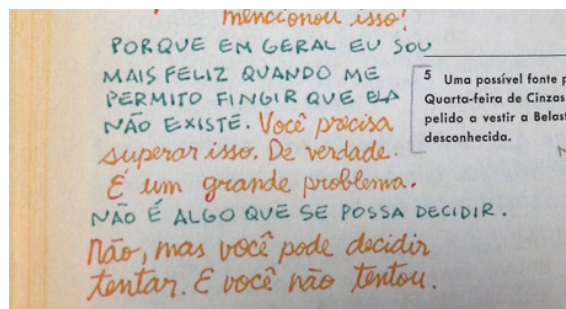 mencionou isso!
PORQUE EM GERAL EU SOU
MAIS FELIZ QUANDO ME
PERMITO FINGIR QUE ELA
NÃO EXISTE. Você precisa
superar isso. De verdade.
É um grande problema.
NÃO É ALGO QUE SE POSSA DECIDIR.
Não, mas você pode decidir
tentar. E você não tentou.
5 Uma possível fonte p
Quarta-feira de Cinzas
pelido a vestir a Belas
desconhecida.